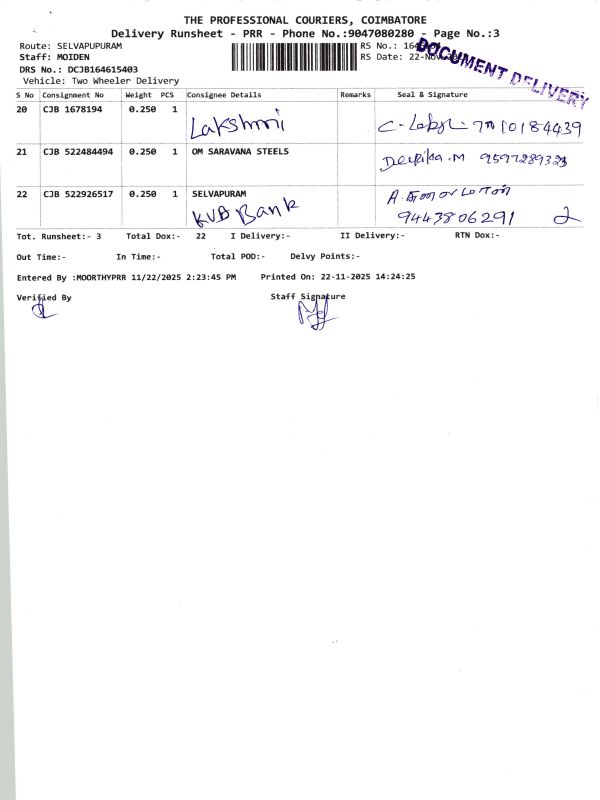 THE PROFESSIONAL COURIERS, COIMBATORE
Delivery Runsheet - PRR - Phone No.:9047080280 - Page No.:3
Route: SELVAPUPURAM RS No.: 164
Staff: MOIDEN RS Date: 22-Nov-
DOCUMENT DELIVERY
DRS No.: DCJB164615403
Vehicle: Two Wheeler Delivery
S No Consignment No Weight PCS Consignee Details Remarks Seal & Signature
20 CJB 1678194 0.250 1
Lakshmi 10184439
21 CJB 522484494 0.250 1 OM SARAVANA STEELS
Devika.M 9597289323
22 CJB 522926517 0.250 1 SELVAPURAM
KVB Bank 9443806291 2
Tot. Runsheet:- 3 Total Dox:- 22 I Delivery:- II Delivery:- RTN Dox:-
Out Time:- In Time:- Total POD:- Delvy Points:-
Entered By :MOORTHYPRR 11/22/2025 2:23:45 PM Printed On: 22-11-2025 14:24:25
Verified By Staff Signature